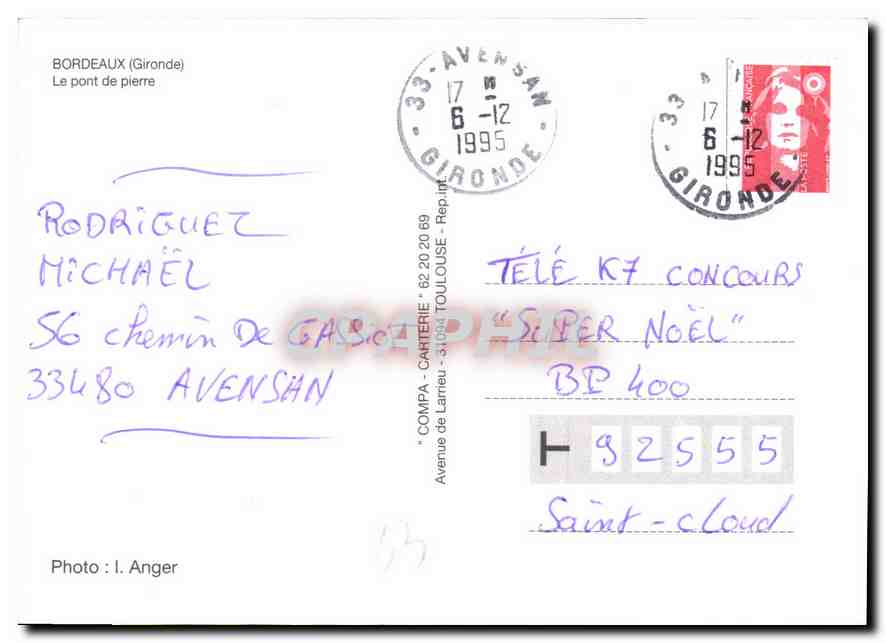 BORDEAUX (Gironde)
Le pont de pierre
33 - AVENSAN
17 H
6 -12
1995
- GIRONDE -
33 - A
17 H
6 -12
1995
- GIRONDE -
FRANÇAISE
LA POSTE
RODRIGUEZ
MICHAËL
56 chemin De GASSIOT
33480 AVENSAN
" COMPA - CARTERIE " 62 20 20 69
Avenue de Larrieu - 31094 TOULOUSE - Rep.int.
TÉLÉ K7 CONCOURS
"SUPER NOËL"
BP 400
92555
Saint-Cloud
CPAPHIL
53
Photo : I. Anger